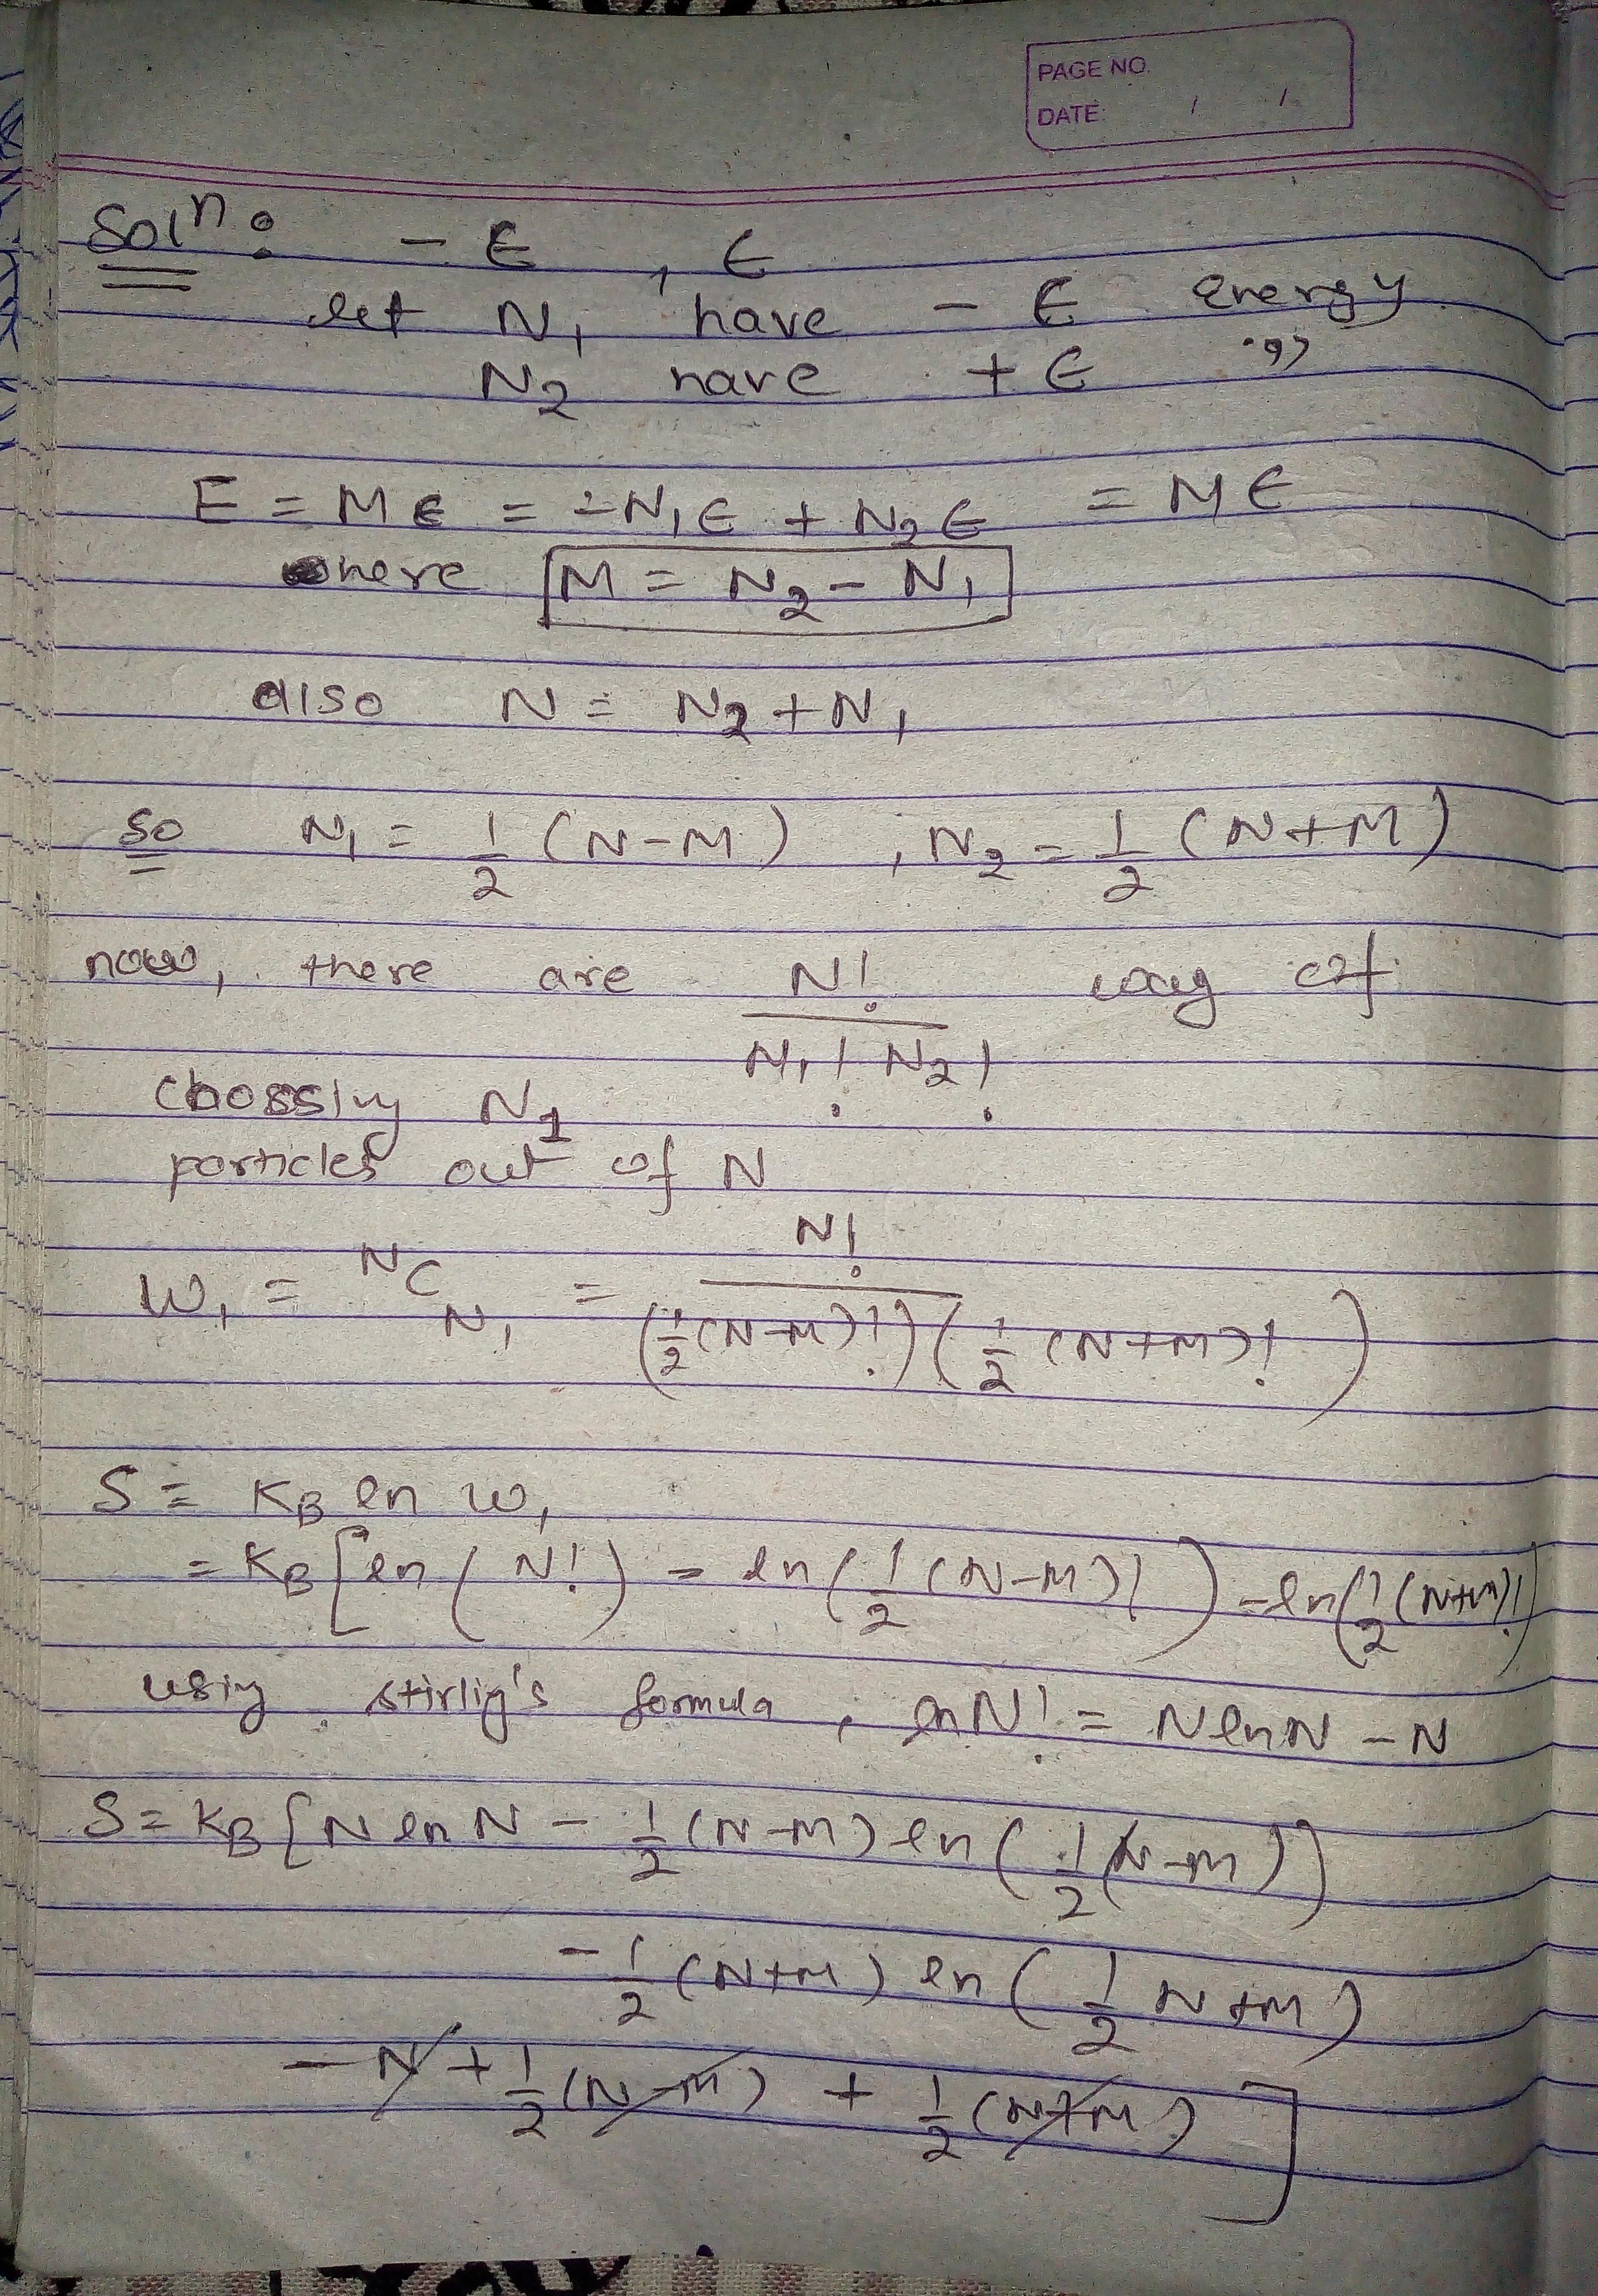 PAGE NO.
DATE: / /
Solⁿ: - ϵ , ϵ
let N₁ have - ϵ energy
N₂ have + ϵ "
E = Mϵ = -N₁ϵ + N₂ϵ = Mϵ
where M = N₂ - N₁
also N = N₂ + N₁
so N₁ = 1/2 (N-M) , N₂ = 1/2 (N+M)
now, there are N!/(N₁! N₂!) way of
choossing N₁
particles out of N
W₁ = ᴺC_N₁ = N!/((1/2(N-M)!)(1/2(N+M)!))
S = K_B ln W₁
= K_B [ln(N!) - ln(1/2(N-M)!) - ln(1/2(N+M)!)
using stirlig's formula, lnN! = NlnN - N
S = K_B [N ln N - 1/2(N-M) ln(1/2(N-M))
-1/2(N+M) ln(1/2 N+M)
- N + 1/2(N-M) + 1/2(N+M)]